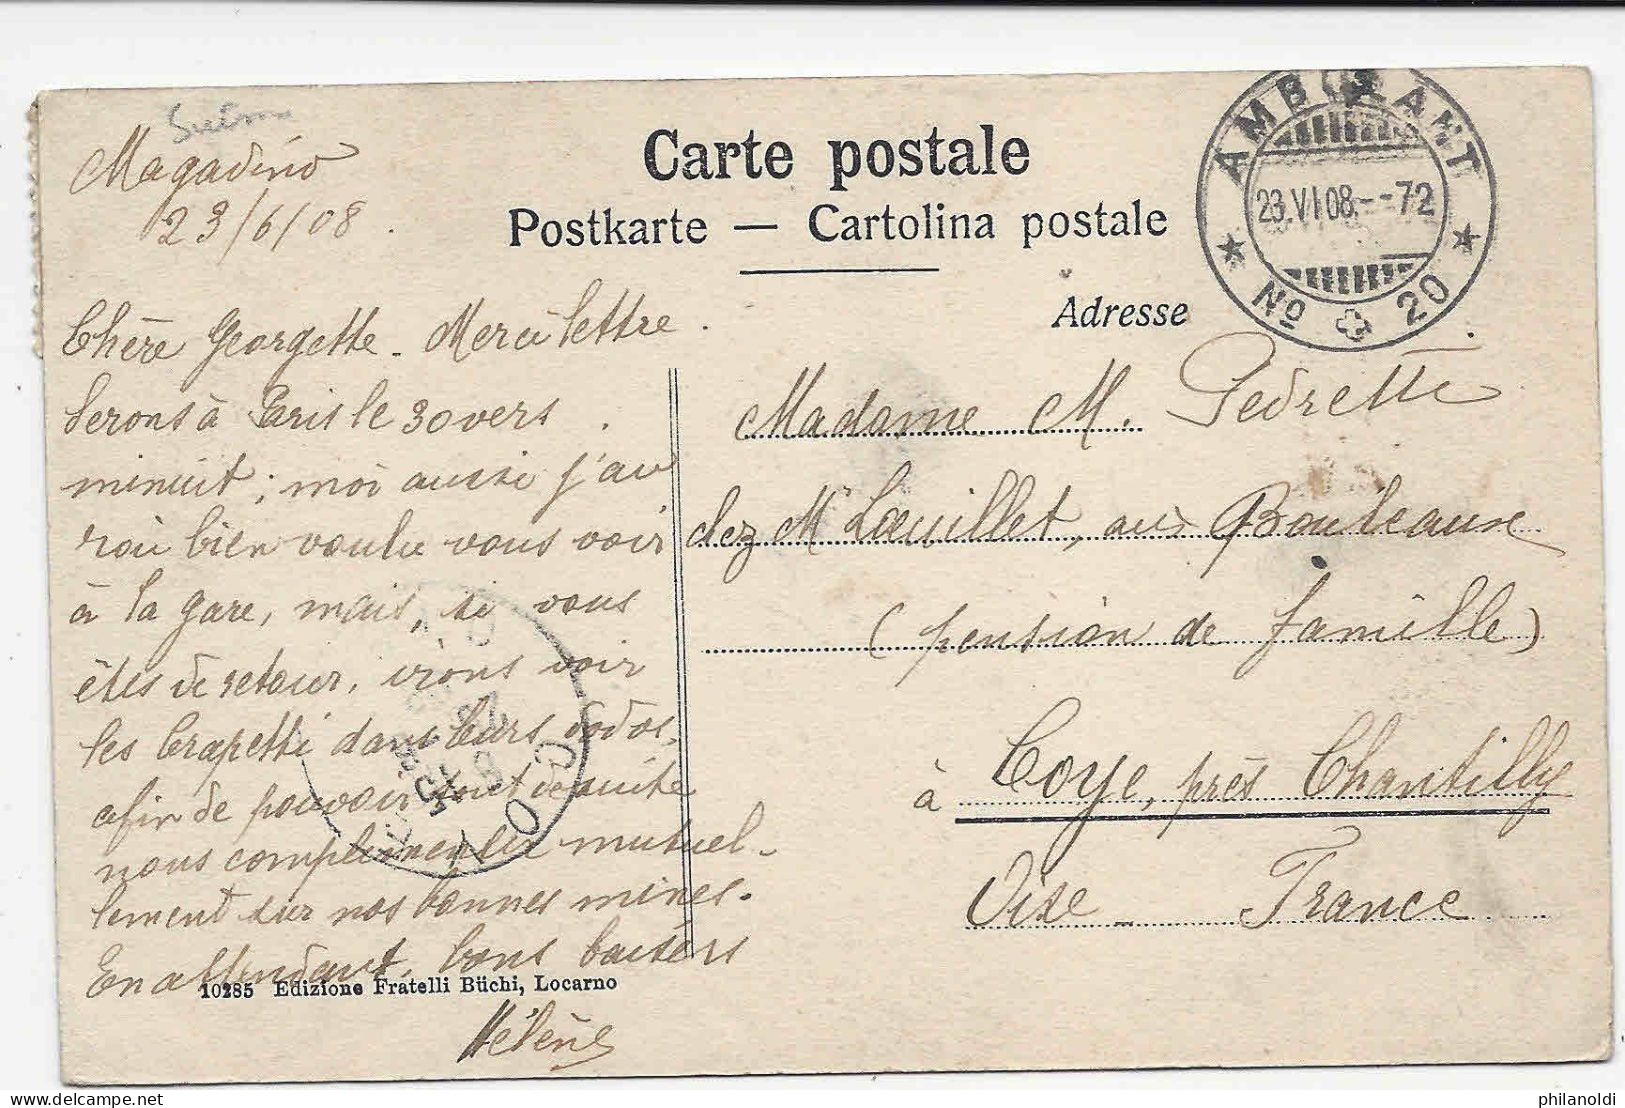 Suisse
Magadino
23/6/08.
Carte postale
Postkarte — Cartolina postale
Adresse
AMBULANT
23.VI.08.--72
No 20
Chère Georgette. Merci lettre.
Serons à Paris le 30 vers
minuit; moi aussi j'au
rais bien voulu vous voir
à la gare, mais, si vous
êtes de retour, irons voir
les Crapetti dans leurs dodos,
afin de pouvoir tout de suite
nous complimenter mutuel-
lement sur nos bonnes mines.
En attendant, bons baisers
Hélène
Madame M. Pedretti
chez Mr Lœuillet, aux Bouleaux
(pension de famille)
à Coye, près Chantilly
Oise - France
10285 Edizione Fratelli Büchi, Locarno
philanoldi
delcampe.net